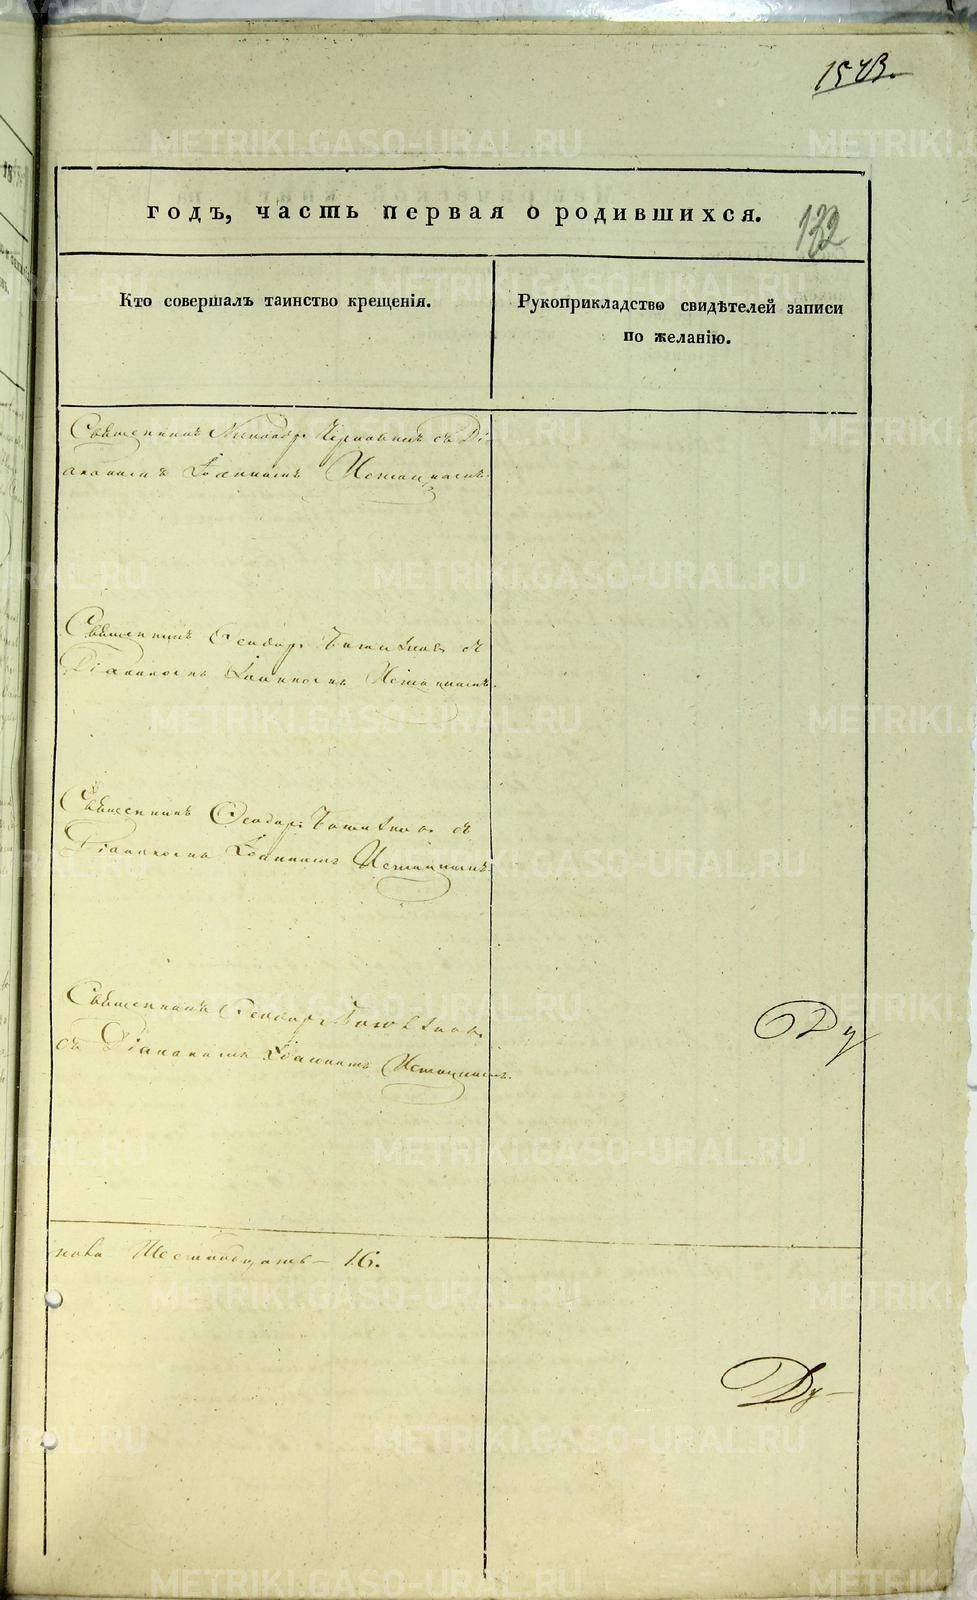 1543.
годъ, часть первая о родившихся.
132
Кто совершалъ таинство крещенія.
Рукоприкладство свидѣтелей записи
по желанію.
Священникъ Никаноръ съ Ді-
акономъ Іоанномъ Истоминымъ.
Священникъ Ѳеодоръ съ
Діакономъ Іоанномъ Истоминымъ.
Священникъ Ѳеодоръ съ
Діакономъ Іоанномъ Истоминымъ.
Священникъ Ѳеодоръ
съ Діакономъ Іоанномъ Истоминымъ.
пола Шестнадцать – 16.
METRIKI.GASO-URAL.RU